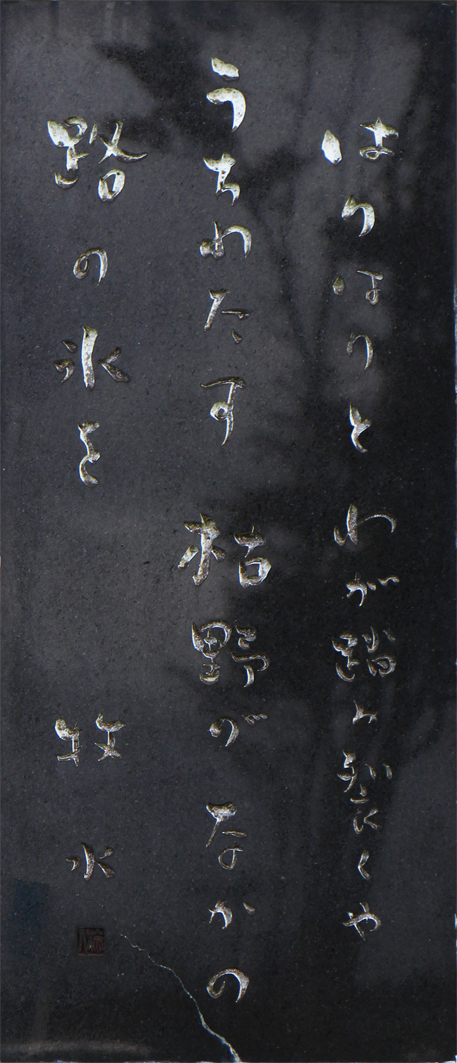 はりはりと わが踏み裂くや
うちわたす 枯野がなかの
路の氷を 牧水